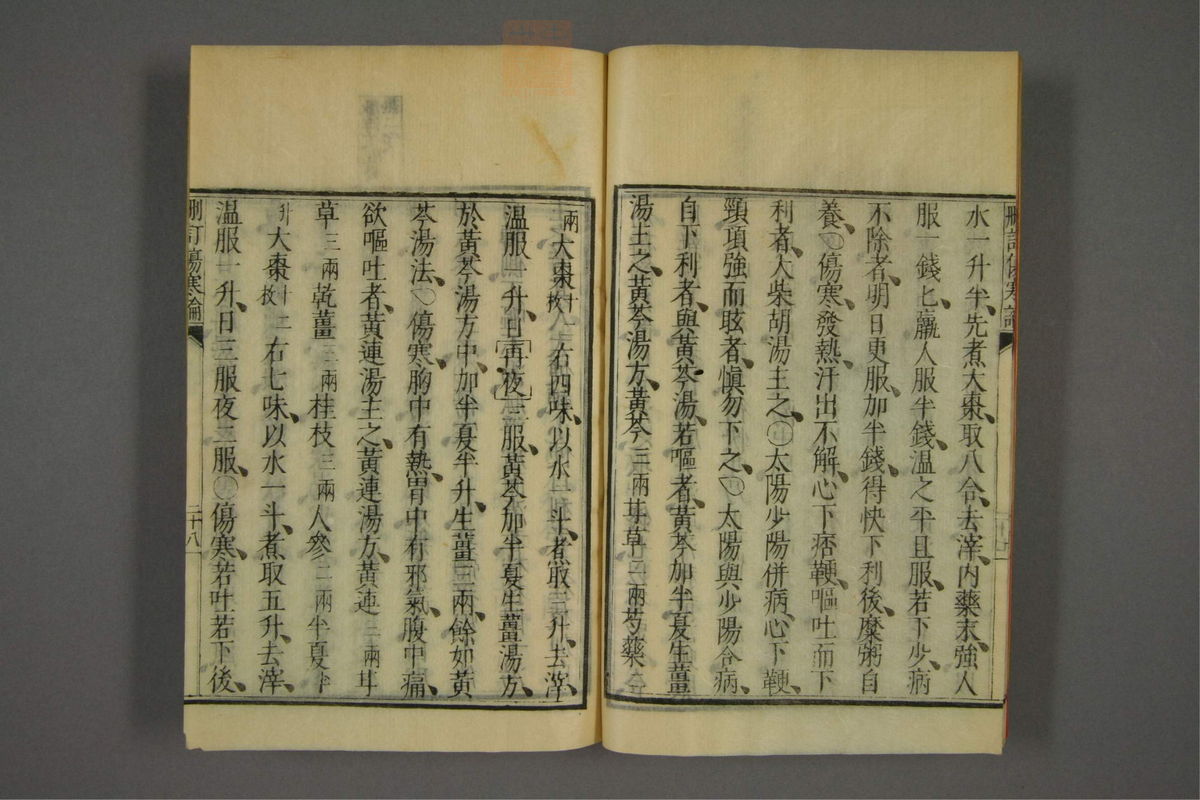 水一升半、先煮大棗、取八合、去滓、內藥末、強人
服一錢匕、羸人服半錢、溫之平旦服、若下少、病
不除者、明日更服、加半錢、得快下利後、糜粥自
養、〇傷寒、發熱、汗出不解、心下痞鞕、嘔吐而下
利者、大柴胡湯主之、〇太陽少陽併病、心下鞕、
頸項強而眩者、愼勿下之、〇太陽與少陽合病、
自下利者、與黃芩湯、若嘔者、黃芩加半夏生薑
湯主之、黃芩湯方、黃芩三兩甘草二兩芍藥二
刪訂傷寒論
兩大棗十二枚右四味、以水一斗、煮取三升、去滓、
溫服一升、日再夜二服、黃芩加半夏生薑湯方、
於黃芩湯方中、加半夏半升、生薑三兩、餘如黃
芩湯法、〇傷寒、胸中有熱、胃中有邪氣、腹中痛、
欲嘔吐者、黃連湯主之、黃連湯方、黃連三兩甘
草三兩乾薑三兩桂枝三兩人參二兩半夏半
升大棗十二枚右七味、以水一斗、煮取五升、去滓、
溫服一升、日三服夜二服、〇傷寒、若吐若下後、
刪訂傷寒論 二十八